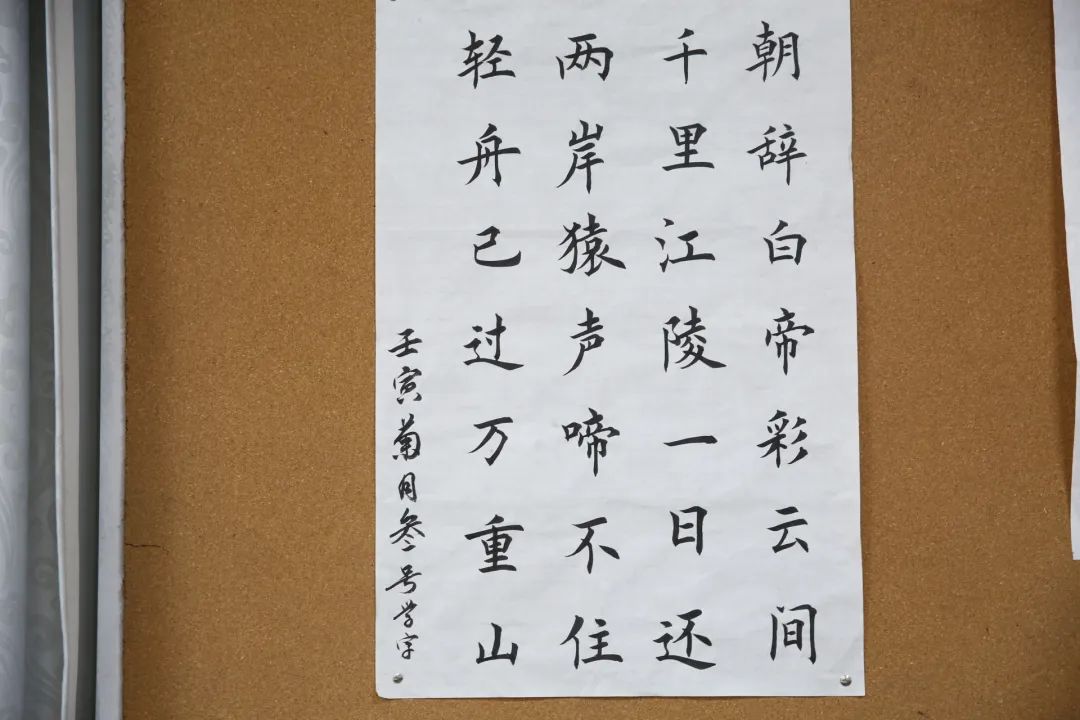 朝辞白帝彩云间
千里江陵一日还
两岸猿声啼不住
轻舟已过万重山
壬寅菊月叁号学字